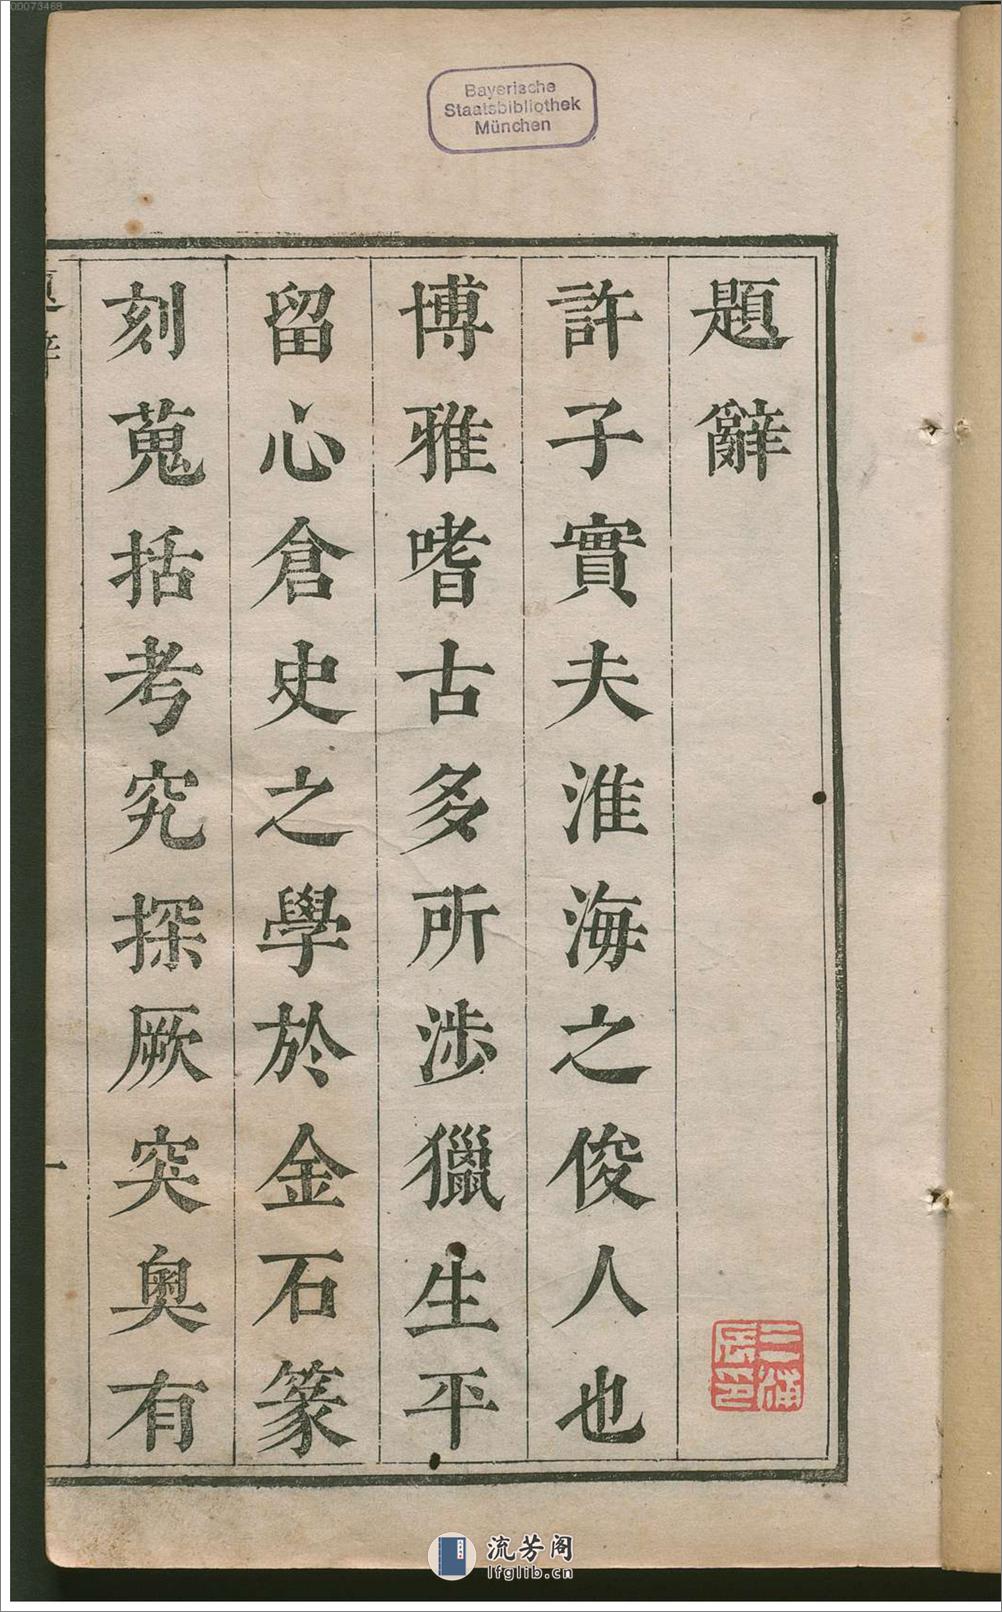 00073468
Bayerische
Staatsbibliothek
München
題辭
許子實夫淮海之俊人也
博雅嗜古多所涉獵生平
留心倉史之學於金石篆
刻蒐括考究探厥突奧有
題辭
一
流芳阁
lfglib.cn